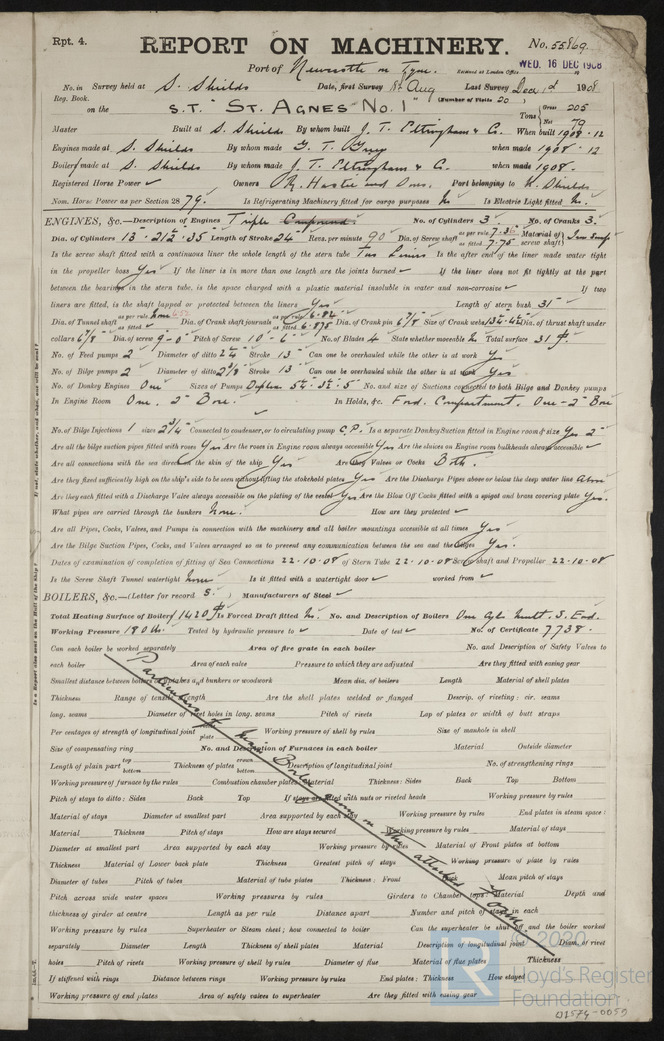 Rpt. 4. REPORT ON MACHINERY. No. 55869.
Port of Newcastle on Tyne. Received at London Office WED. 16 DEC 1908
No. in Survey held at S. Shields Date, first Survey Aug Last Survey Dec 1st 1908
Reg. Book. (Number of Visits 20)
on the S.T. "St. Agnes No. 1" Tons Gross 205 Net 79
Master Built at S. Shields By whom built J. T. Eltringham & Co. When built 1908-12
Engines made at S. Shields By whom made G. T. Grey when made 1908-12
Boilers made at S. Shields By whom made J. T. Eltringham & Co. when made 1908.
Registered Horse Power Owners R. Hastie and Sons. Port belonging to N. Shields
Nom. Horse Power as per Section 28 79. Is Refrigerating Machinery fitted for cargo purposes No Is Electric Light fitted No.
ENGINES, &c.—Description of Engines Triple Compound. No. of Cylinders 3 No. of Cranks 3.
Dia. of Cylinders 13 - 21½ - 35 Length of Stroke 24 Revs. per minute 90 Dia. of Screw shaft as per rule 7.36 as fitted 7.75 Material of screw shaft
Is the screw shaft fitted with a continuous liner the whole length of the stern tube Two Liners Is the after end of the liner made water tight
in the propeller boss Yes If the liner is in more than one length are the joints burned If the liner does not fit tightly at the part
between the bearings in the stern tube, is the space charged with a plastic material insoluble in water and non-corrosive If two
liners are fitted, is the shaft lapped or protected between the liners Yes Length of stern bush 31"
Dia. of Tunnel shaft as per rule as fitted Dia. of Crank shaft journals as per rule 6.82 as fitted 6.875 Dia. of Crank pin 6⅞ Size of Crank webs 13¼ - 4½ Dia. of thrust shaft under
collars 6⅞ Dia. of screw 9-0 Pitch of Screw 10-6 No. of Blades 4 State whether moveable No Total surface 31 ft.
No. of Feed pumps 2 Diameter of ditto 2¼ Stroke 13 Can one be overhauled while the other is at work Yes
No. of Bilge pumps 2 Diameter of ditto 2⅜ Stroke 13 Can one be overhauled while the other is at work Yes
No. of Donkey Engines One Sizes of Pumps Duplex 5¼ - 3½ - 5 No. and size of Suctions connected to both Bilge and Donkey pumps
In Engine Room One. 2" Bore. In Holds, &c. Ford. Compartment. One - 2" Bore
No. of Bilge Injections 1 sizes 2¾ Connected to condenser, or to circulating pump C.P. Is a separate Donkey Suction fitted in Engine room & size Yes 2"
Are all the bilge suction pipes fitted with roses Yes Are the roses in Engine room always accessible Yes Are the sluices on Engine room bulkheads always accessible
Are all connections with the sea direct on the skin of the ship Yes Are they Valves or Cocks Both.
Are they fixed sufficiently high on the ship's side to be seen without lifting the stokehold plates Yes Are the Discharge Pipes above or below the deep water line Above
Are they each fitted with a Discharge Valve always accessible on the plating of the vessel Yes Are the Blow Off Cocks fitted with a spigot and brass covering plate Yes.
What pipes are carried through the bunkers None. How are they protected
Are all Pipes, Cocks, Valves, and Pumps in connection with the machinery and all boiler mountings accessible at all times Yes
Are the Bilge Suction Pipes, Cocks, and Valves arranged so as to prevent any communication between the sea and the bilges Yes.
Dates of examination of completion of fitting of Sea Connections 22-10-08 of Stern Tube 22-10-08 Screw shaft and Propeller 22-10-08
Is the Screw Shaft Tunnel watertight None Is it fitted with a watertight door worked from
BOILERS, &c.—(Letter for record S.) Manufacturers of Steel
Total Heating Surface of Boilers 1420 ft Is Forced Draft fitted No. No. and Description of Boilers One Cyl. Mult. S. End.
Working Pressure 180 lb. Tested by hydraulic pressure to Date of test No. of Certificate 7738.
Can each boiler be worked separately Area of fire grate in each boiler No. and Description of Safety Valves to
each boiler Area of each valve Pressure to which they are adjusted Are they fitted with easing gear
Smallest distance between boilers or uptakes and bunkers or woodwork Mean dia. of boilers Length Material of shell plates
Thickness Range of tensile strength Are the shell plates welded or flanged Descrip. of riveting: cir. seams
long. seams Diameter of rivet holes in long. seams Pitch of rivets Lap of plates or width of butt straps
Per centages of strength of longitudinal joint plate Working pressure of shell by rules Size of manhole in shell
Size of compensating ring No. and Description of Furnaces in each boiler Material Outside diameter
Length of plain part top bottom Thickness of plates crown bottom Description of longitudinal joint No. of strengthening rings
Working pressure of furnace by the rules Combustion chamber plates: Material Thickness: Sides Back Top Bottom
Pitch of stays to ditto: Sides Back Top If stays are fitted with nuts or riveted heads Working pressure by rules
Material of stays Diameter at smallest part Area supported by each stay Working pressure by rules End plates in steam space:
Material Thickness Pitch of stays How are stays secured Working pressure by rules Material of stays
Diameter at smallest part Area supported by each stay Working pressure by rules Material of Front plates at bottom
Thickness Material of Lower back plate Thickness Greatest pitch of stays Working pressure of plate by rules
Diameter of tubes Pitch of tubes Material of tube plates Thickness: Front Mean pitch of stays
Pitch across wide water spaces Working pressures by rules Girders to Chamber tops: Material Depth and
thickness of girder at centre Length as per rule Distance apart Number and pitch of stays in each
Working pressure by rules Superheater or Steam chest; how connected to boiler Can the superheater be shut off and the boiler worked
separately Diameter Length Thickness of shell plates Material Description of longitudinal joint Diam. of rivet
holes Pitch of rivets Working pressure of shell by rules Diameter of flue Material of flue plates Thickness
If stiffened with rings Distance between rings Working pressure by rules End plates: Thickness How stayed
Working pressure of end plates Area of safety valves to superheater Are they fitted with easing gear
Particulars of Main Boiler given on the attached Form
© 2020
Lloyd's Register
Foundation